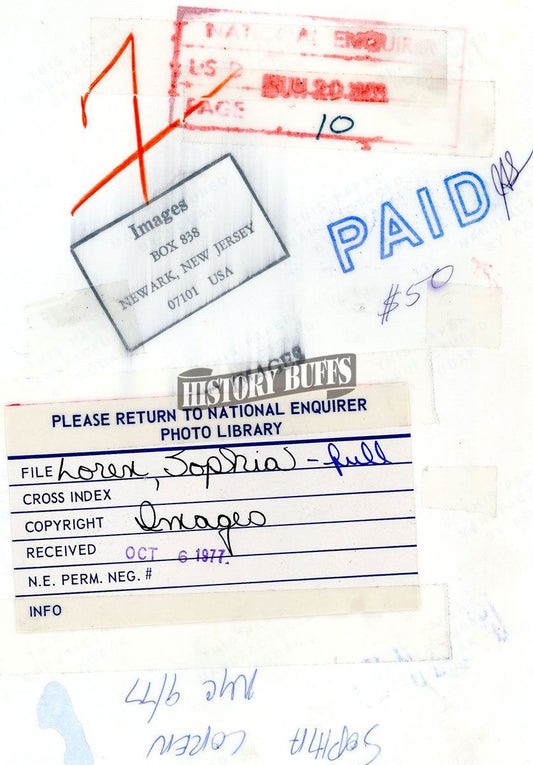 NATIONAL ENQUIRER
US
PAGE
10
Images
BOX 838
NEWARK, NEW JERSEY
07101 USA
PAID
$50
IMAGES
HISTORY BUFFS
PLEASE RETURN TO NATIONAL ENQUIRER
PHOTO LIBRARY
FILE Loren, Sophia - full
CROSS INDEX
COPYRIGHT Images
RECEIVED OCT 6 1977
N.E. PERM. NEG. #
INFO
NYC 9/77
SOPHIA LOREN